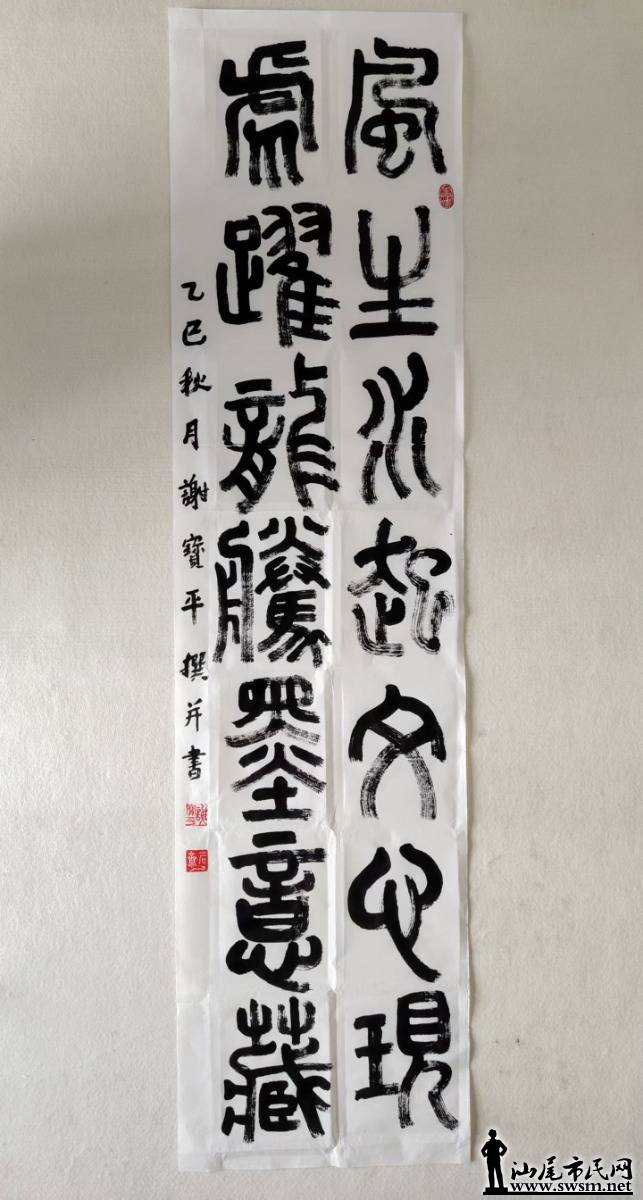 風生水起文心現
虎躍龍騰墨意藏
乙巳秋月謝寶平撰并書
汕尾市民网
www.swsm.net